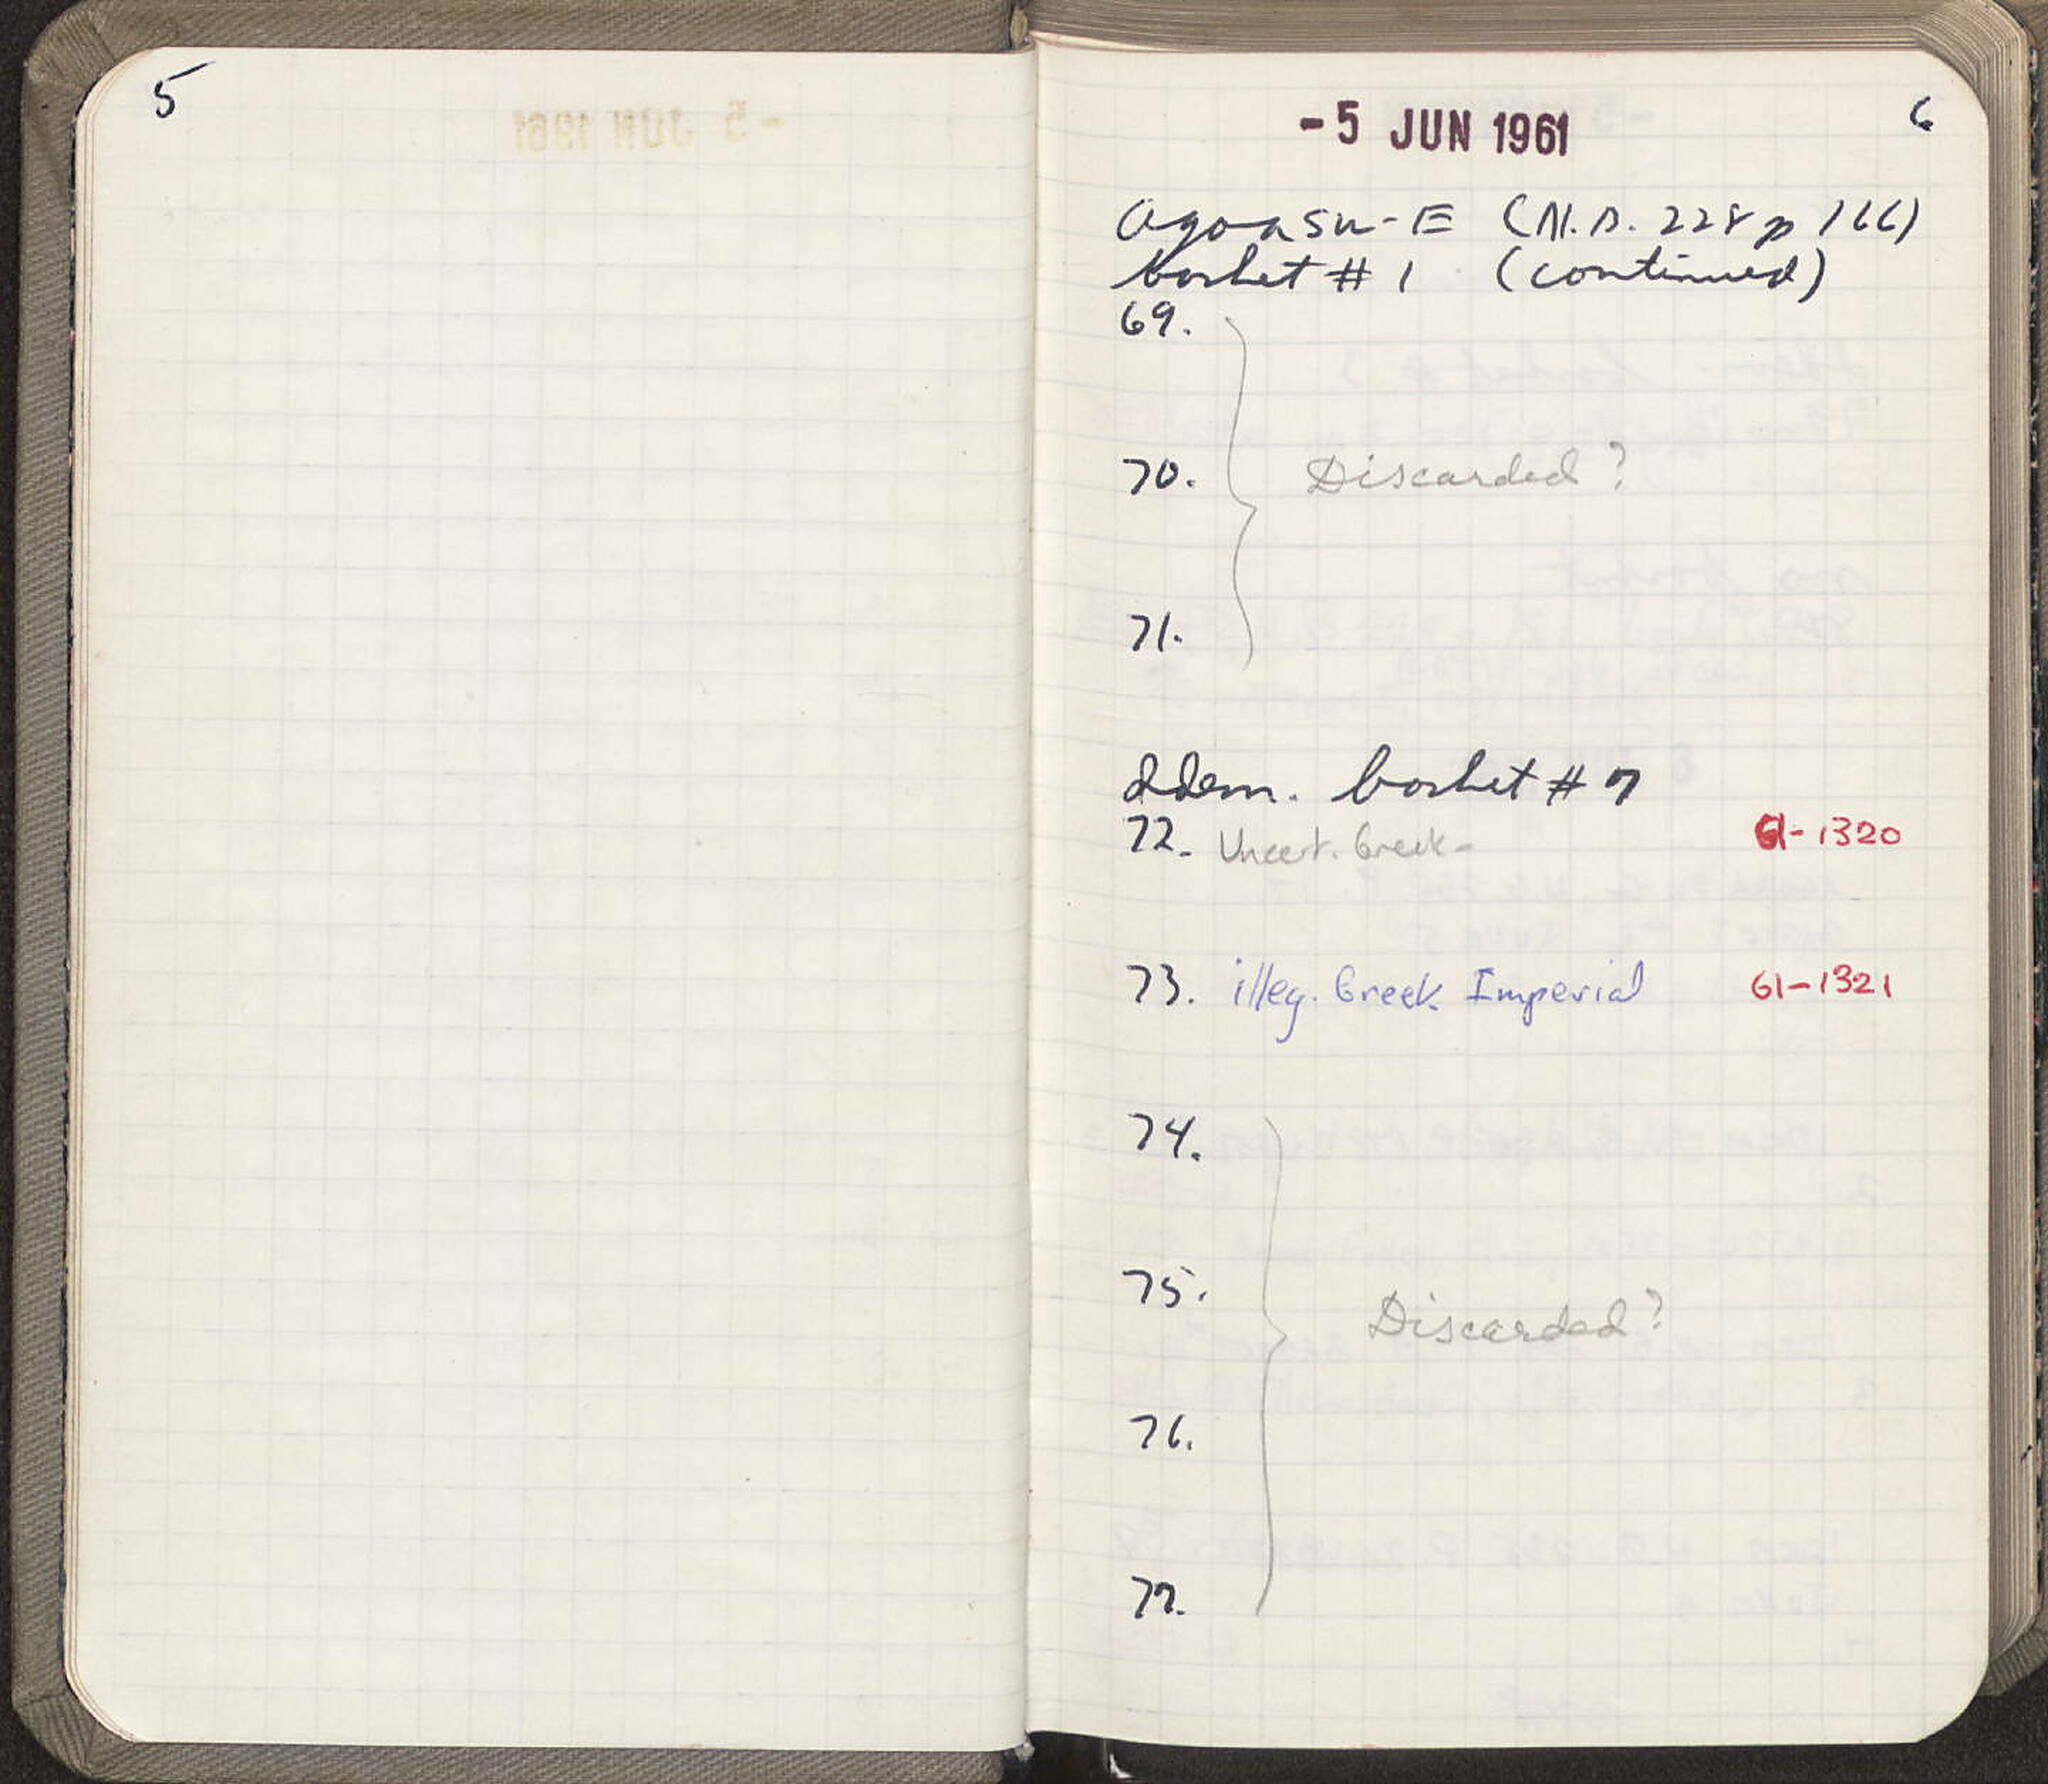 5
- 5 JUN 1961
6
Agora SW-E (N.B. 228 p 166)
basket # 1 (continued)
69.
70. Discarded?
71.
Idem. basket # 7
72. Uncert. Greek - 61-1320
73. illeg. Greek Imperial 61-1321
74.
75.
Discarded?
76.
77.